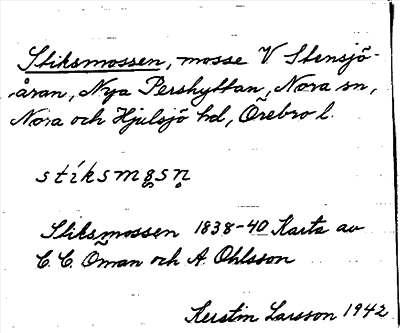 Stiksmossen, mosse V Stensjö-
åran, Nya Pershyttan, Nora sn,
Nora och Hjulsjö hd, Örebro l.
stíksmo̥sn̥
Stiksmossen 1838-40 Karta av
C. C. Öman och A. Ohlsson
Kerstin Larsson 1942